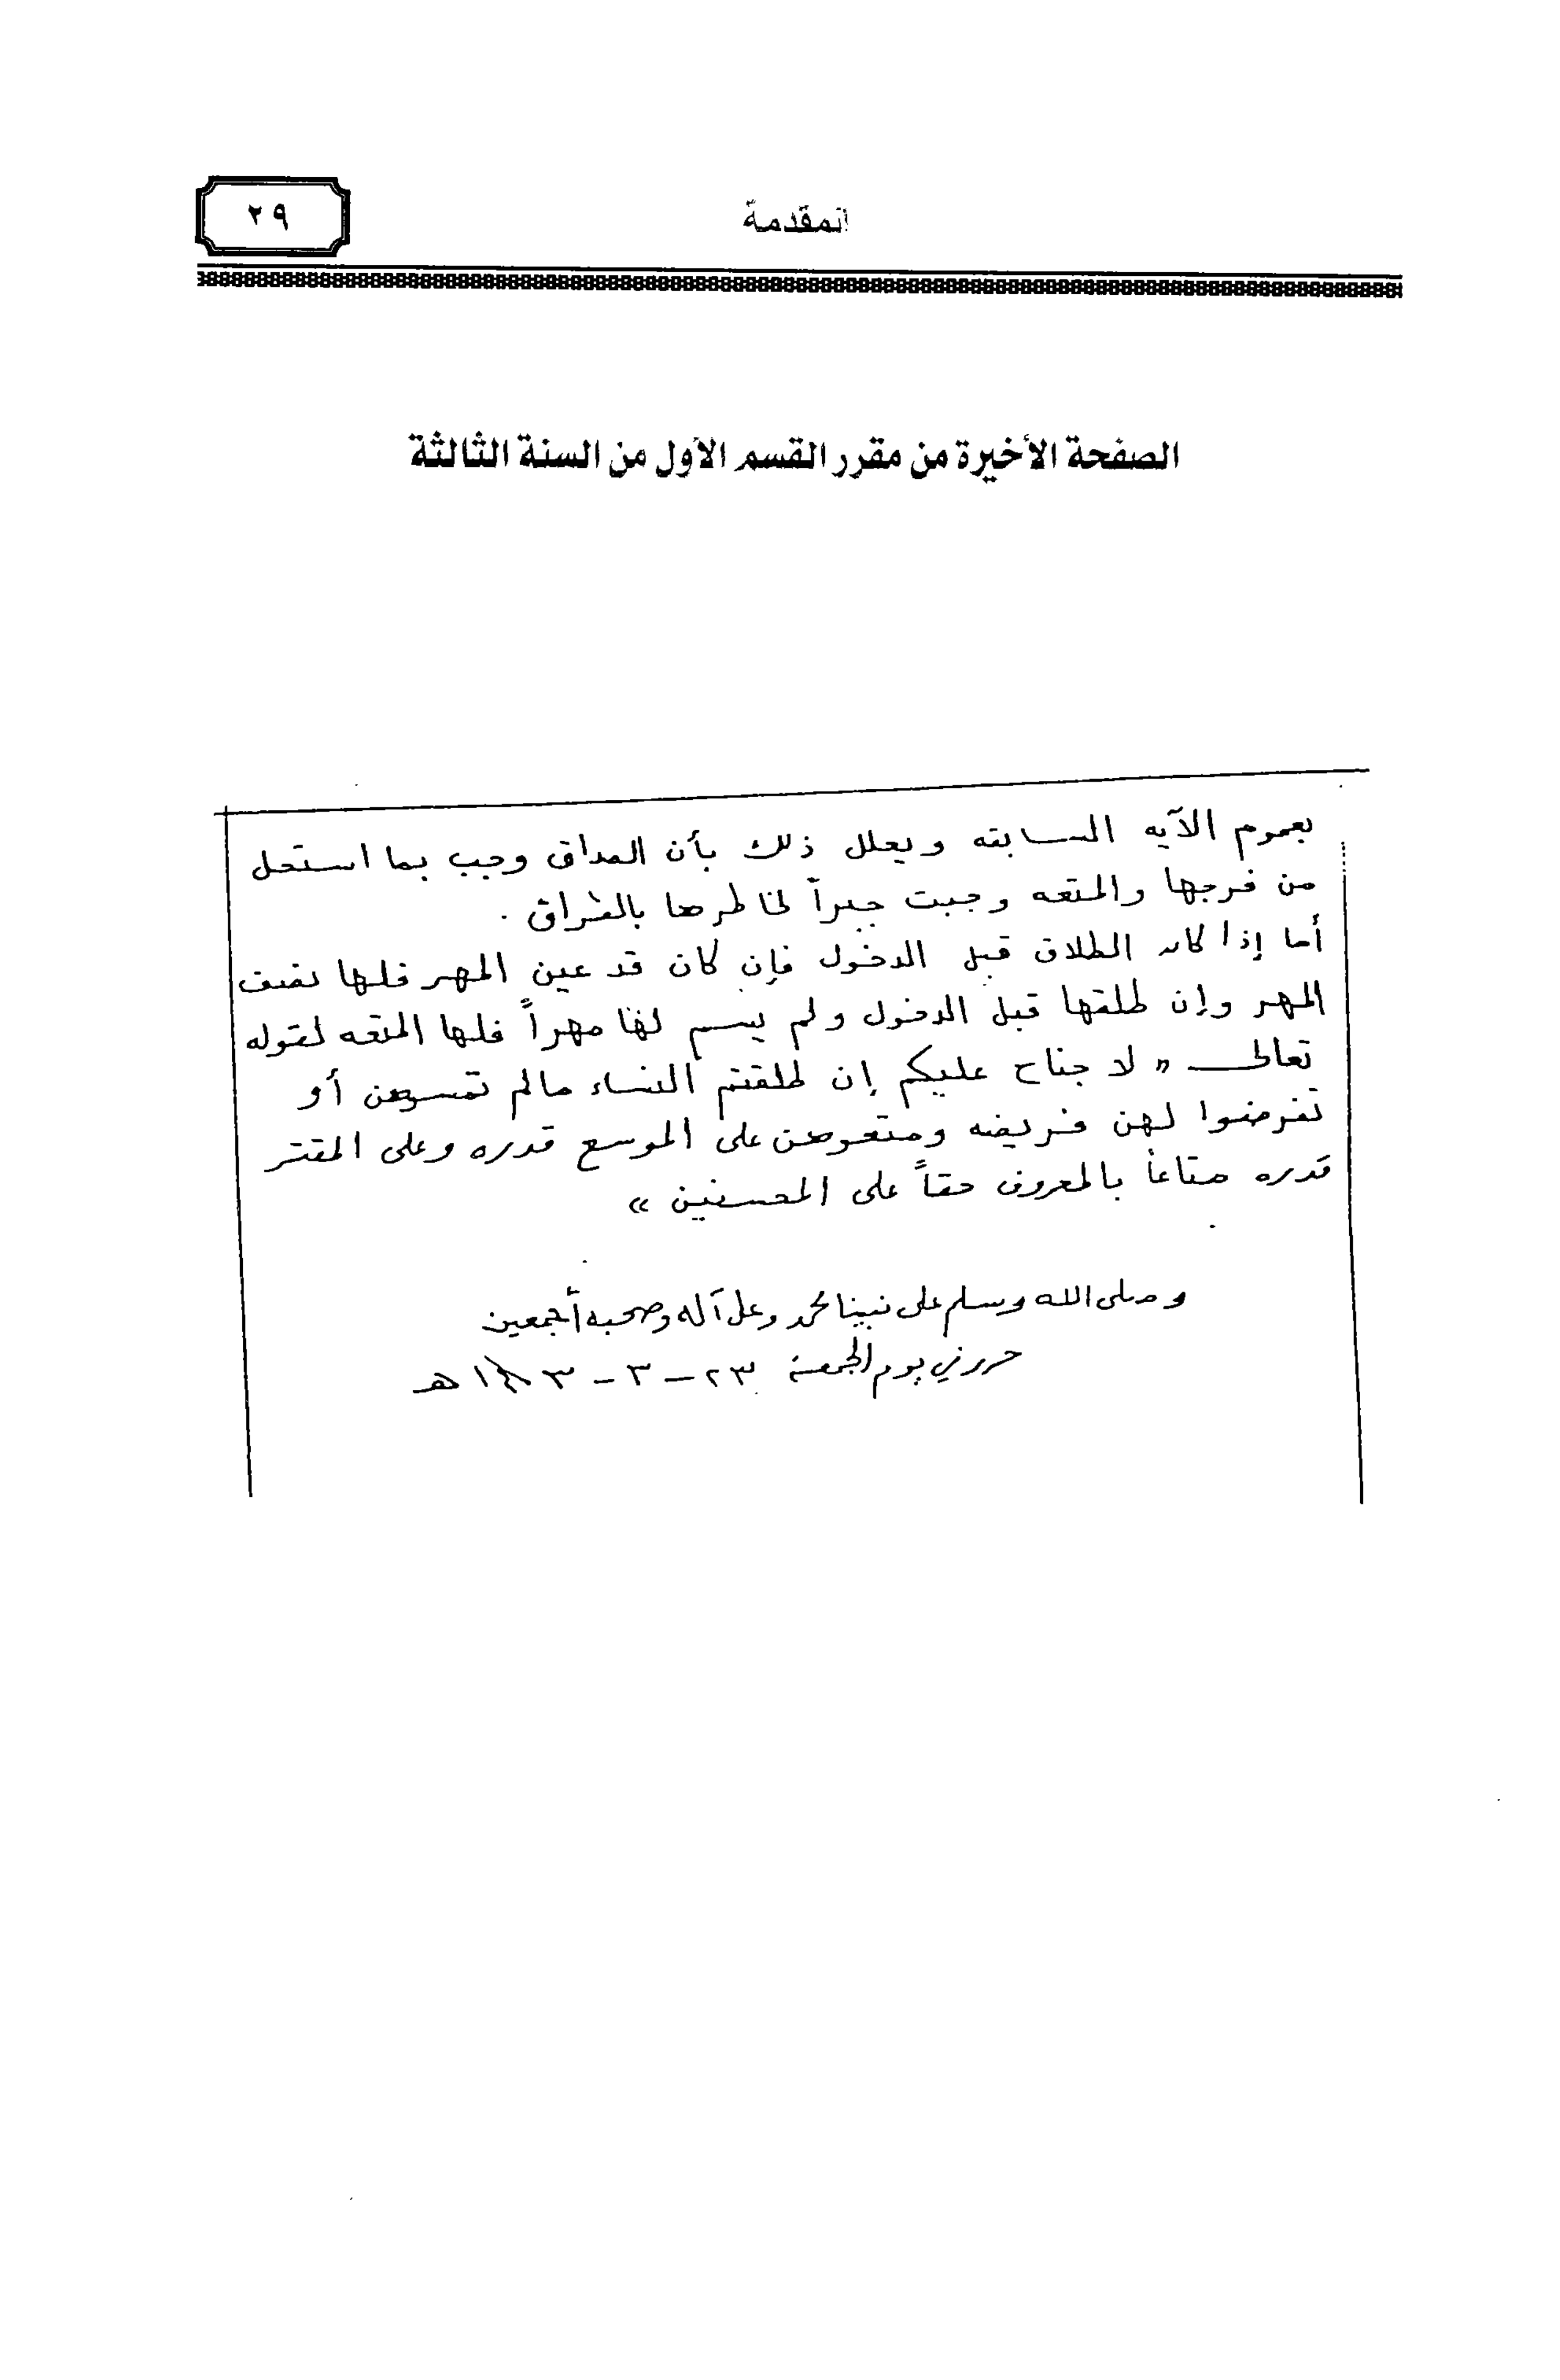 المقدمة
٢٩
الصفحة الأخيرة من مقرر القسم الأول من السنة الثالثة
بعموم الآيه السابقه ويعلل ذلك بأن الصداق وجب بما استحل
من فرجها والمتعه وجبت جبراً لخاطرها بالفراق .
أما إذا كان الطلاق قبل الدخول فإن كان قد عين المهر فلها نصف
المهر وإن طلقها قبل الدخول ولم يسم لها مهراً فلها المتعه لقوله
تعالى « لا جناح عليكم إن طلقتم النساء مالم تمسوهن أو
تفرضوا لهن فريضه ومتعوهن على الموسع قدره وعلى المقتر
قدره متاعاً بالمعروف حقاً على المحسنين »
وصلى الله وسلم على نبينا محمد وعلى آله وصحبه أجمعين
حرر في يوم الجمعة ٢٣ - ٣ - ١٤٠٣ هـ